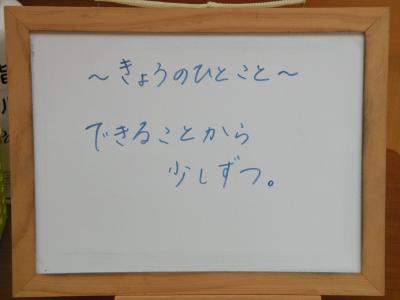 ～きょうのひとこと～
できることから
少しずつ。